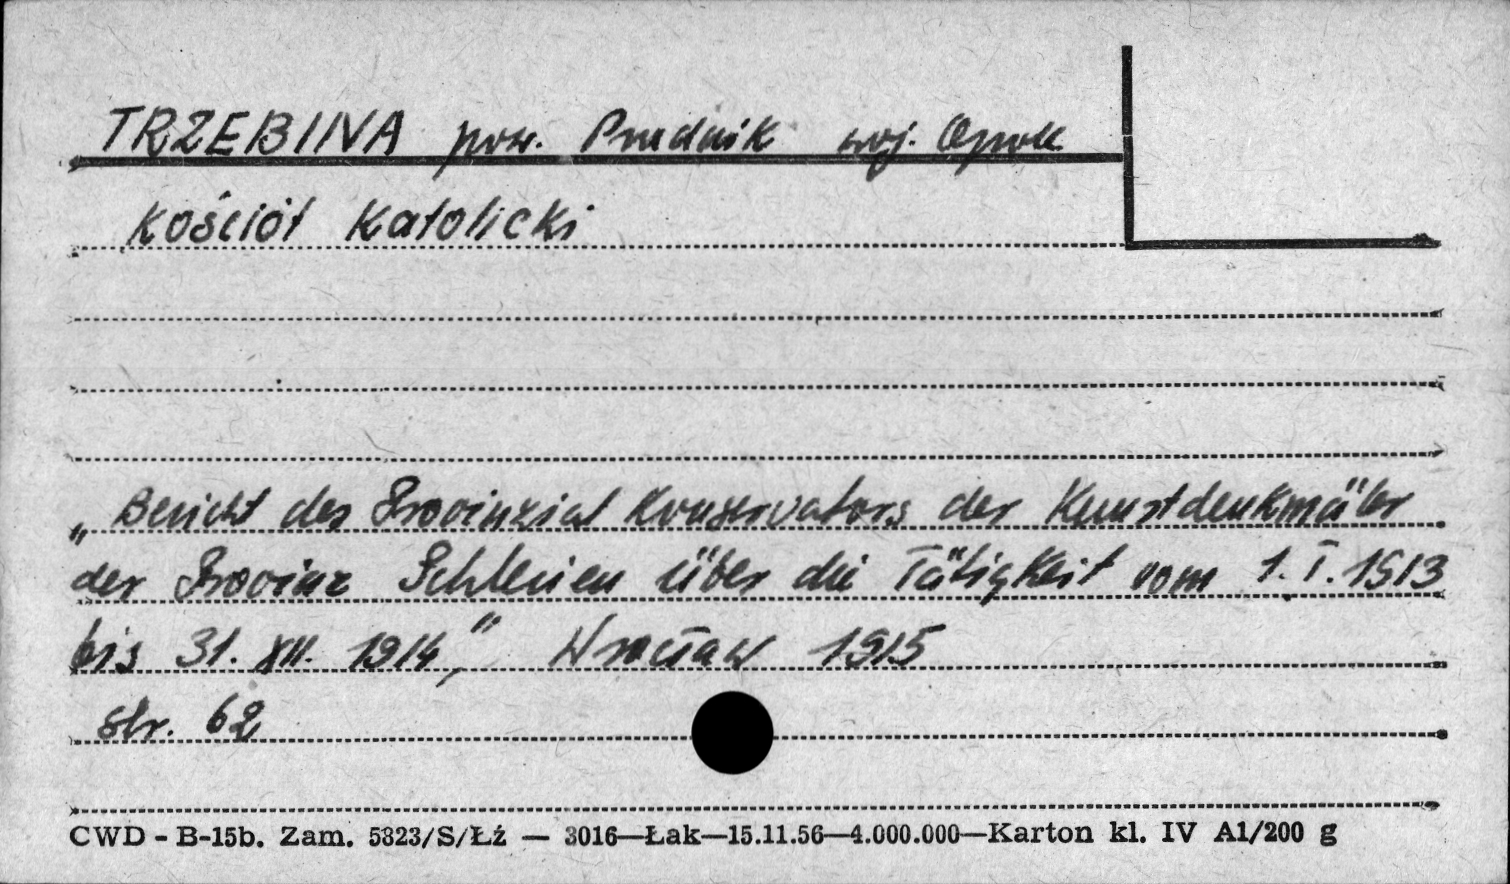 TRZEBINA pow. Prudnik woj. Opole
Kościół Katolicki
„Bericht des Provinzial Konservators der Kunstdenkmäler
der Provinz Schlesien über die Tätigkeit vom 1. I. 1913
bis 31. XII. 1914," Wrocław 1915
str. 62
CWD - B-15b. Zam. 5323/S/Łź — 3016—Łak—15.11.56—4.000.000—Karton kl. IV A1/200 g